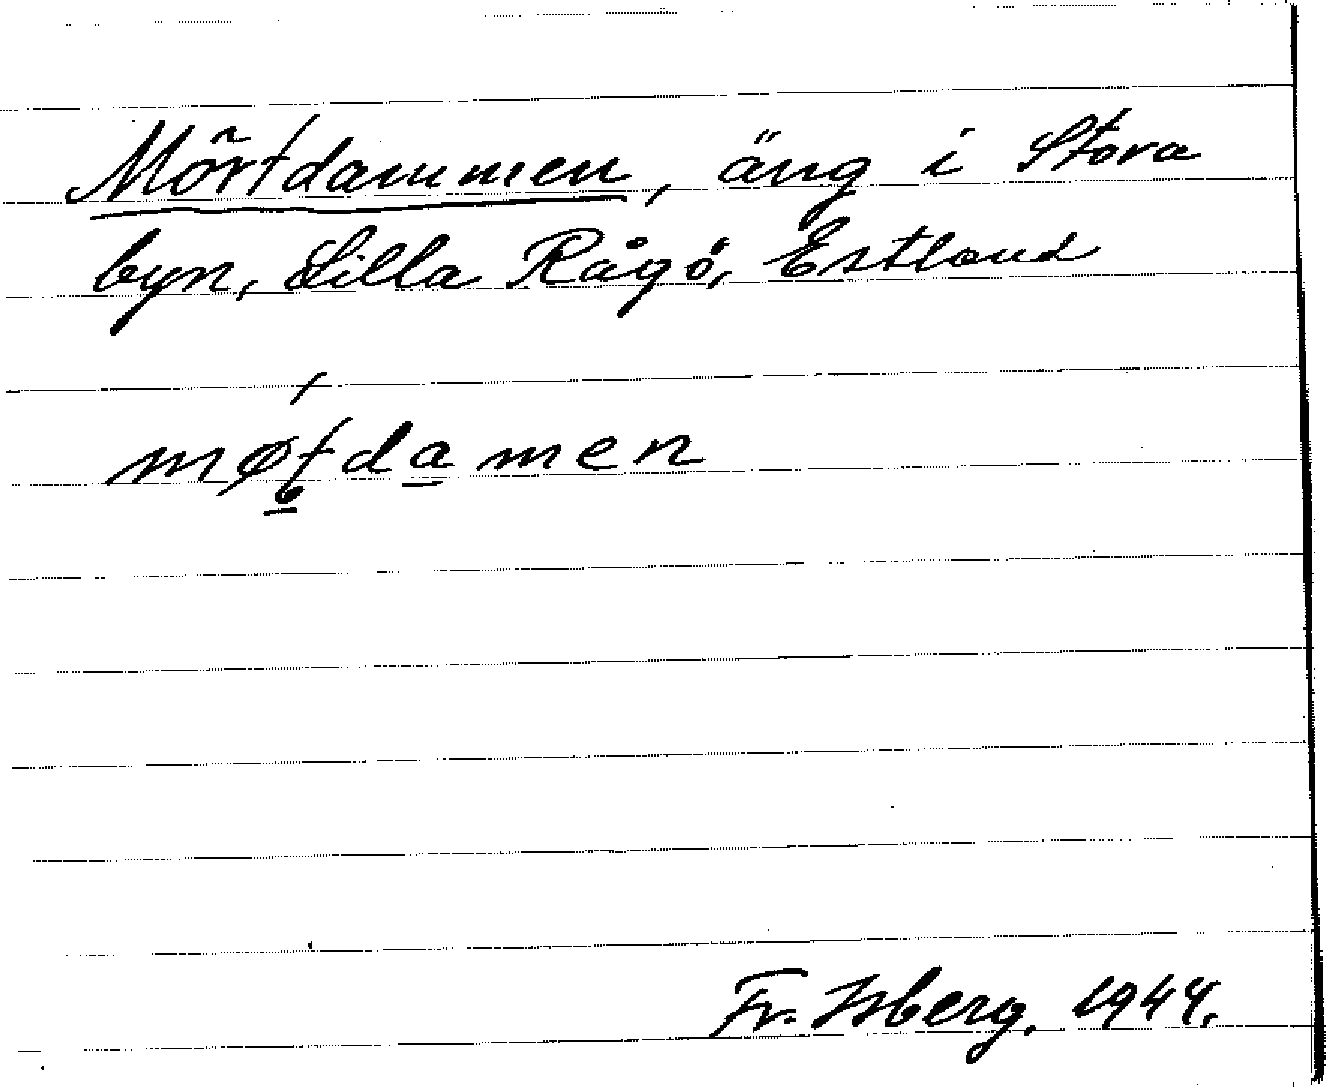 Mörtdammen, äng i Stora
byn, Lilla Rågö, Estland
møtdamen
Fr. Isberg. 1944.